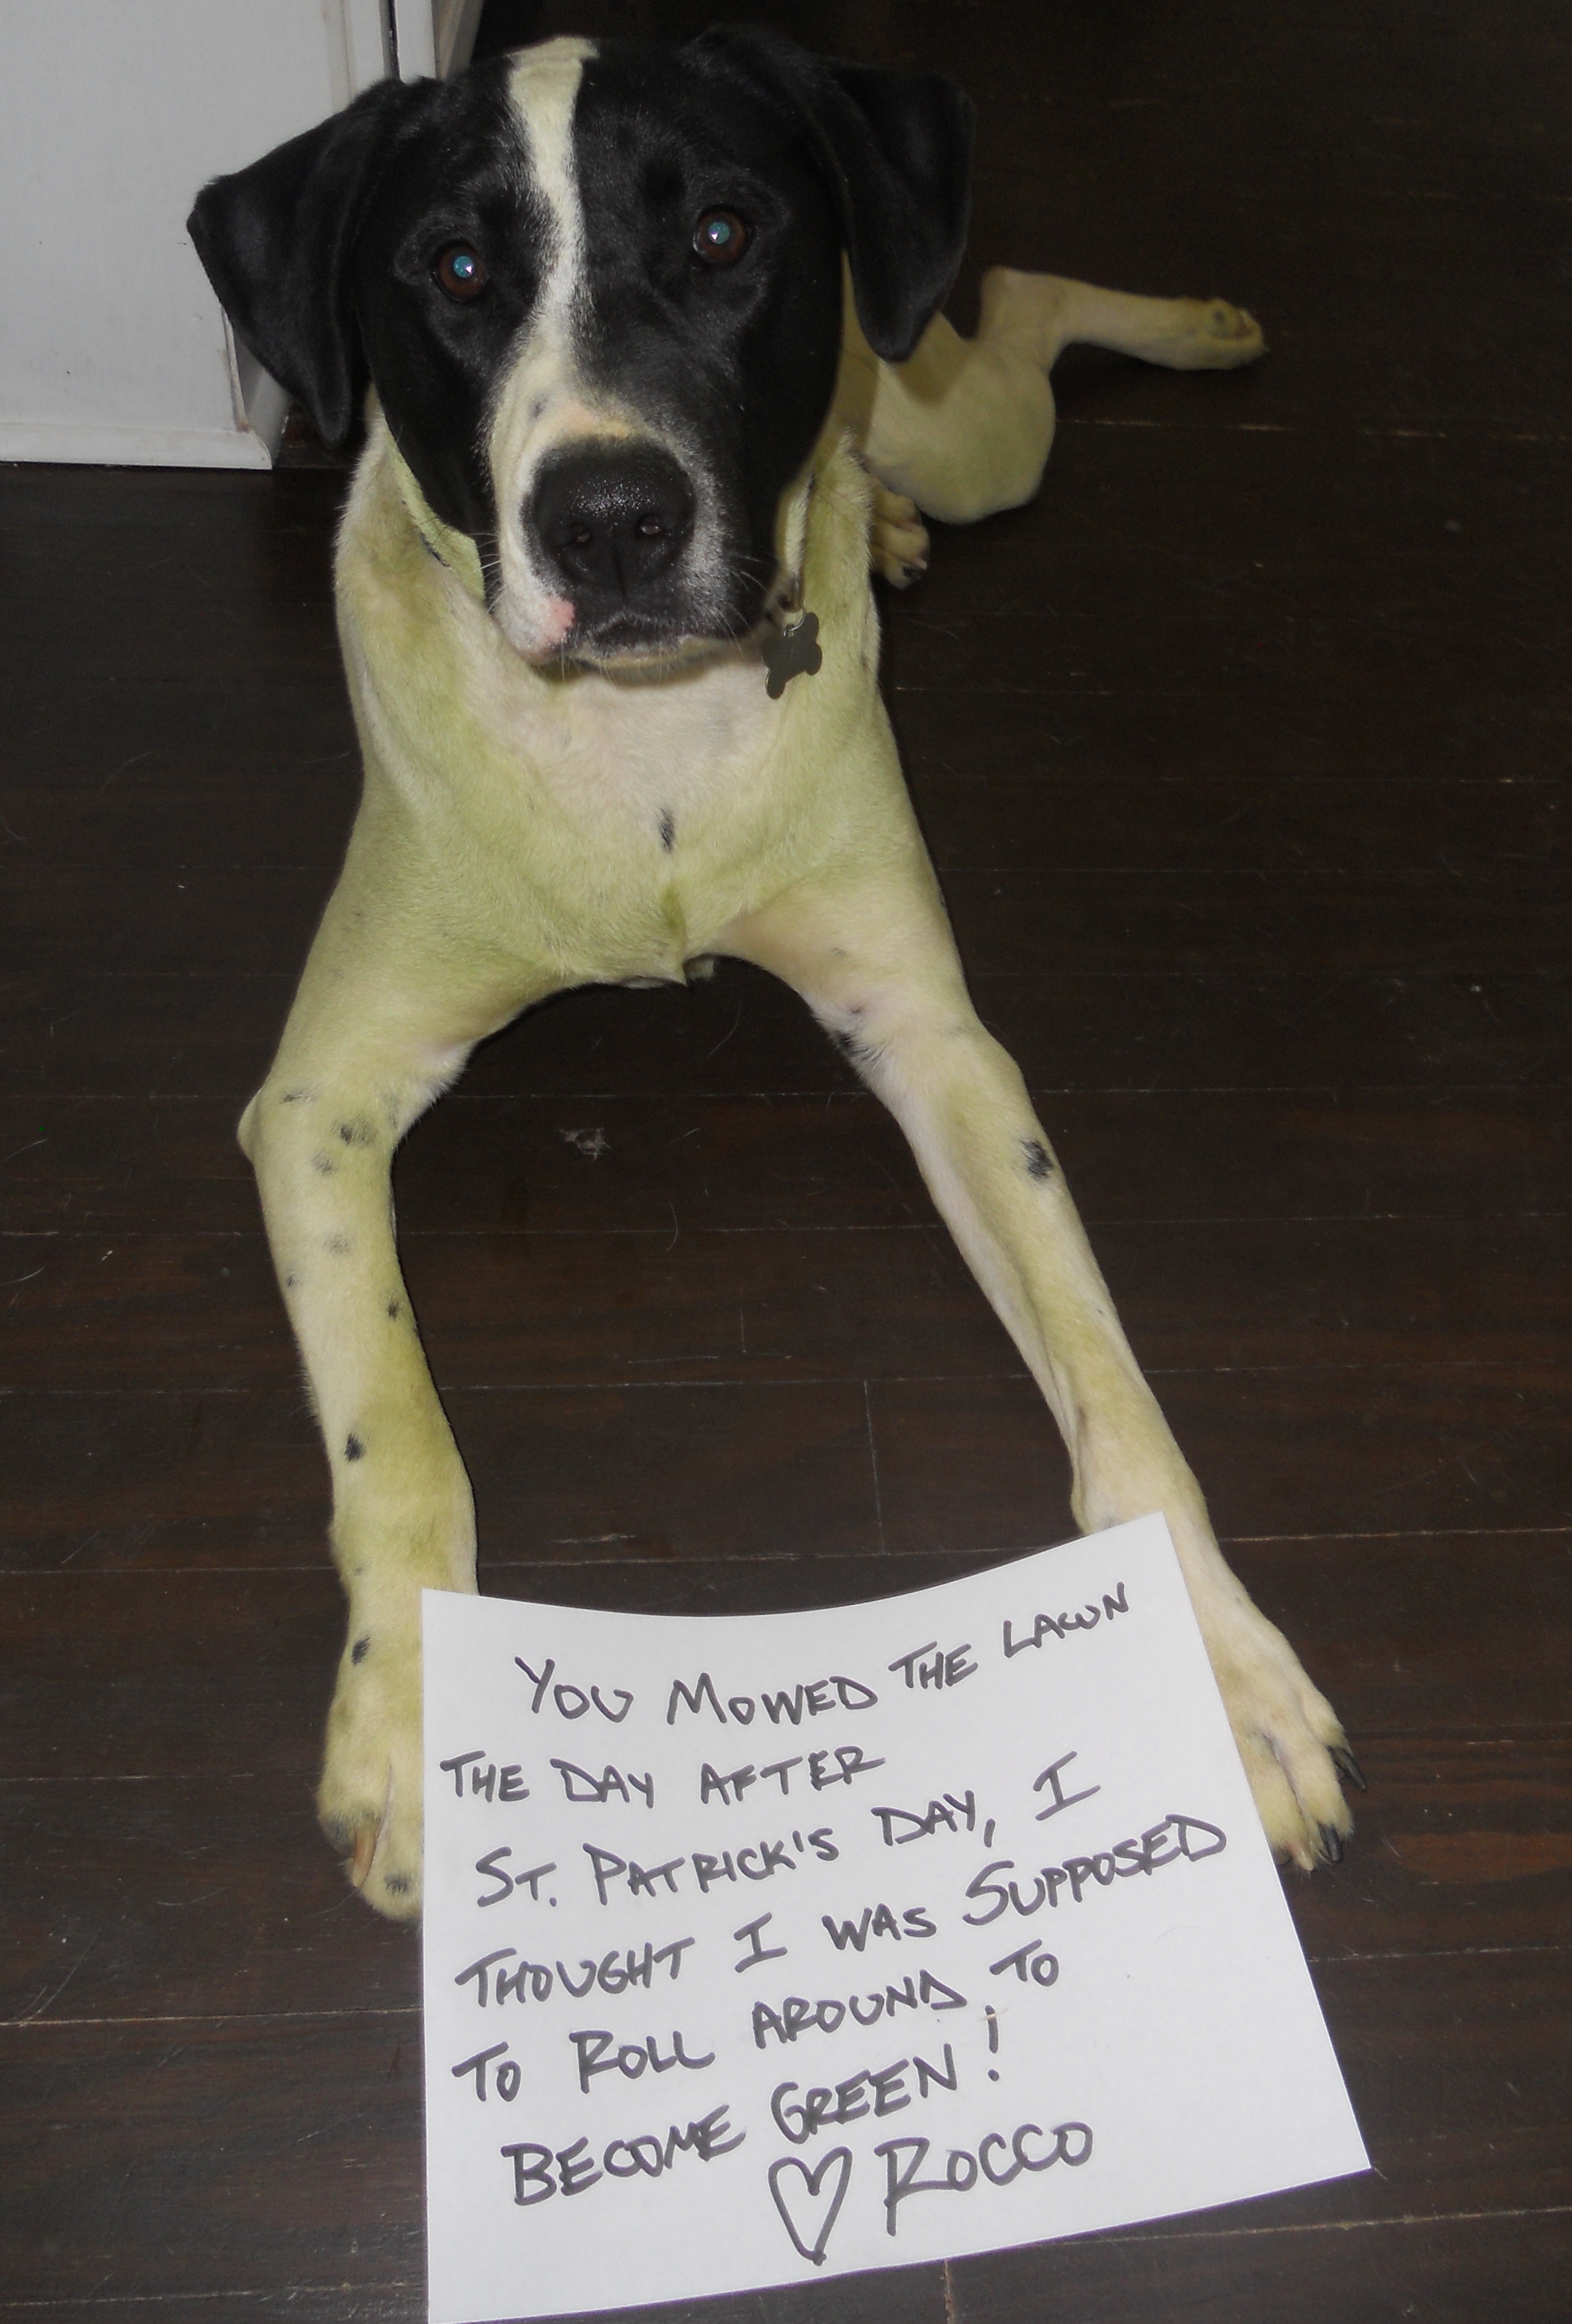 YOU MOWED THE LAWN
THE DAY AFTER
ST. PATRICK'S DAY, I
THOUGHT I WAS SUPPOSED
TO ROLL AROUND TO
BECOME GREEN!
♡ ROCCO